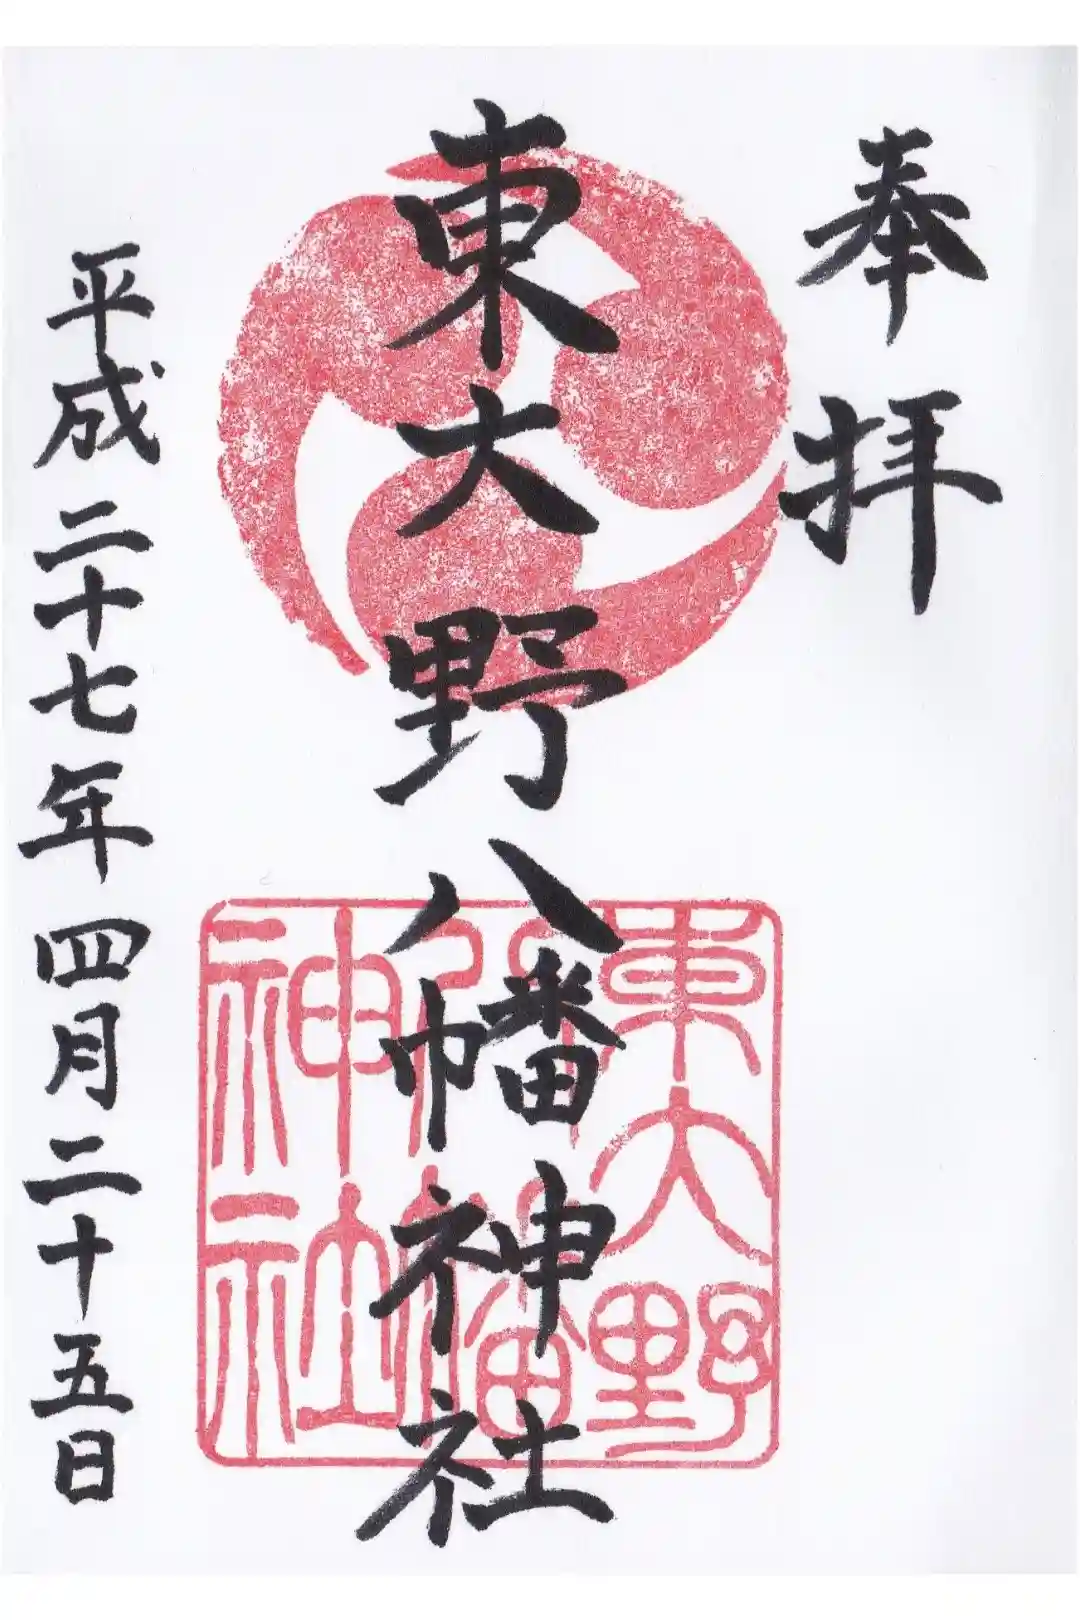 奉拝
東大野八幡神社
東大野
八幡
神社
平成二十七年四月二十五日